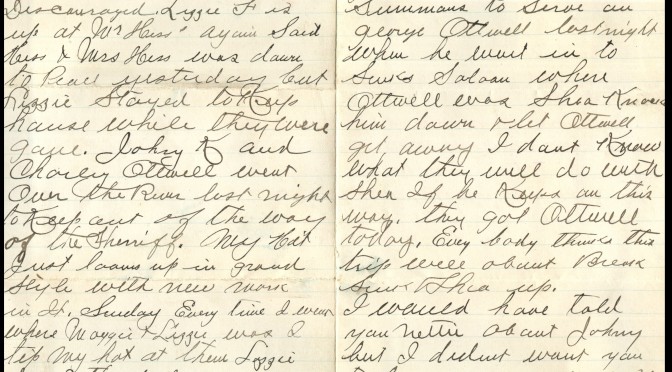 Discouraged. Lizzie F is
up at Mr Hess' again Said
Hess & Mrs Hess was down
to yesterday but
Lizzie Stayed to Keep
house while they were
gone. Johny K and
Charey Ottwell went
Over the River last night
to Keep out of the way
of the Sherriff. My Hat
Just looms up in grand
Style with new work
in it. Sunday Every time I went
where Maggie & Lizzie was I
tip my hat at them Lizzie
Summans to Serve on
george Ottwell last night
when he went in to
Saloon where
Ottwell was Shea Knoced
him down & let Ottwell
get away I dant Know
what they will do with
Shea If he Keeps on this
way. they got Ottwell
today. Every body thinks this
trip will about Break
Shea up.
I would have told
you Nettie about Johny
but I didnt want you